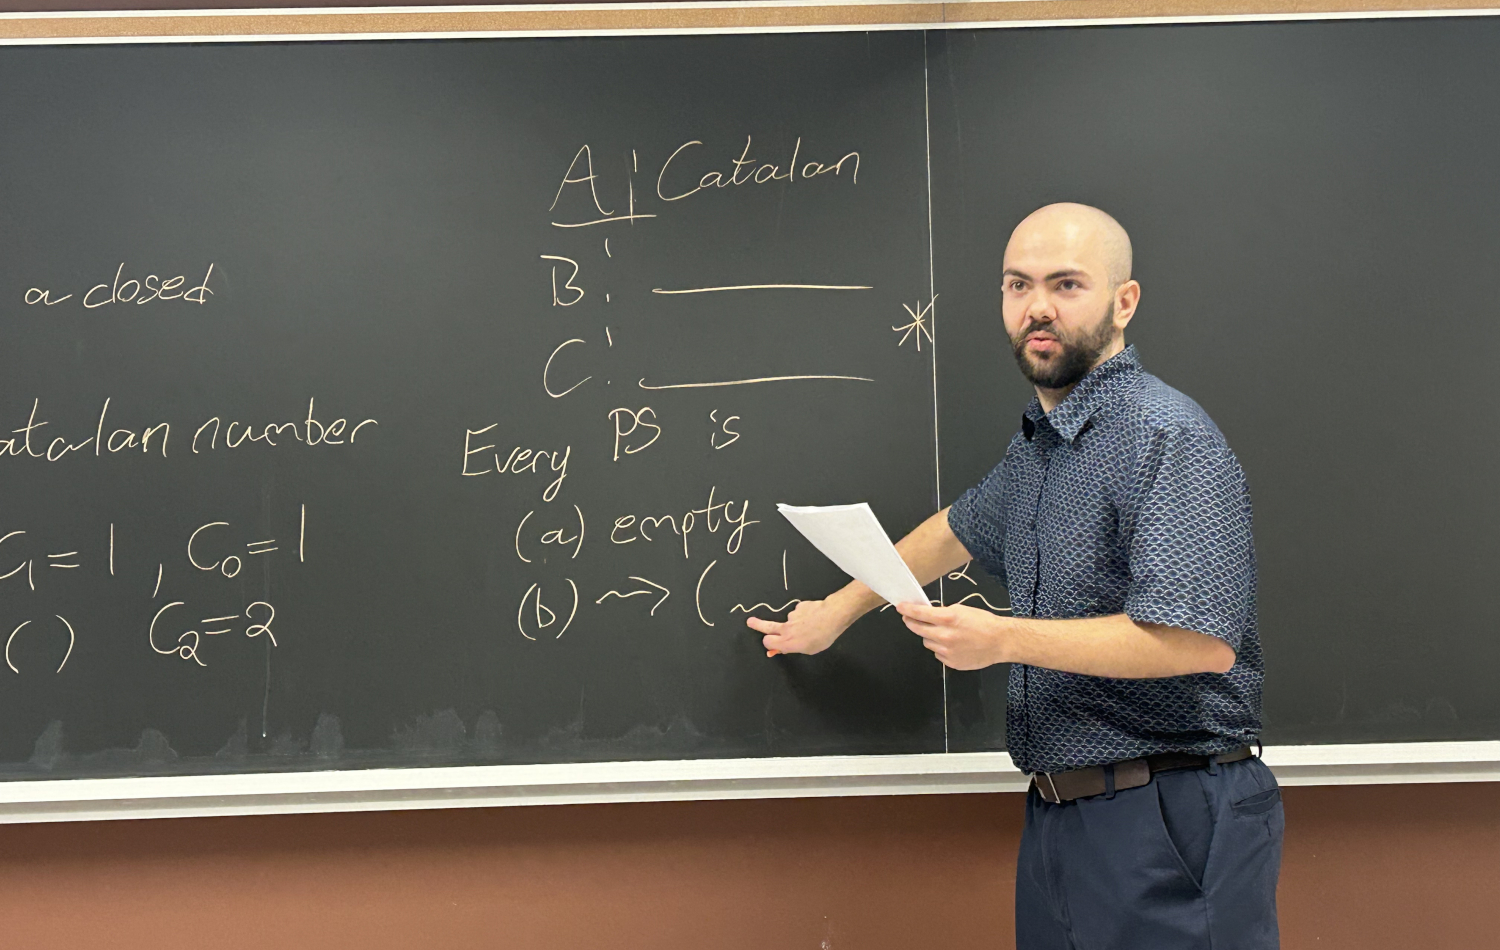 a closed
atalan number
C₁ = 1 , C₀ = 1
( ) C₂ = 2
A | Catalan
B:
C:
*
Every PS is
(a) empty
(b) ⇝ ( 1 2